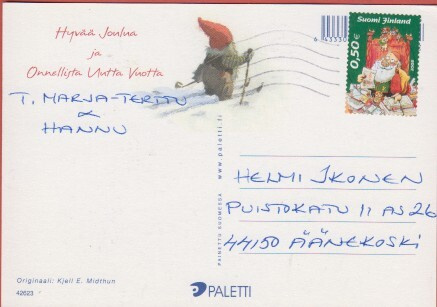 Hyvää Joulua
ja
Onnellista Uutta Vuotta
T. MARJA-TERTTU
&
HANNU
Suomi Finland
0,50€
www.paletti.fi
PAINETTU SUOMESSA
HELMI IKONEN
PUISTOKATU 11 AS 26
44150 ÄÄNEKOSKI
Originaali: Kjell E. Midthun
42623
PALETTI